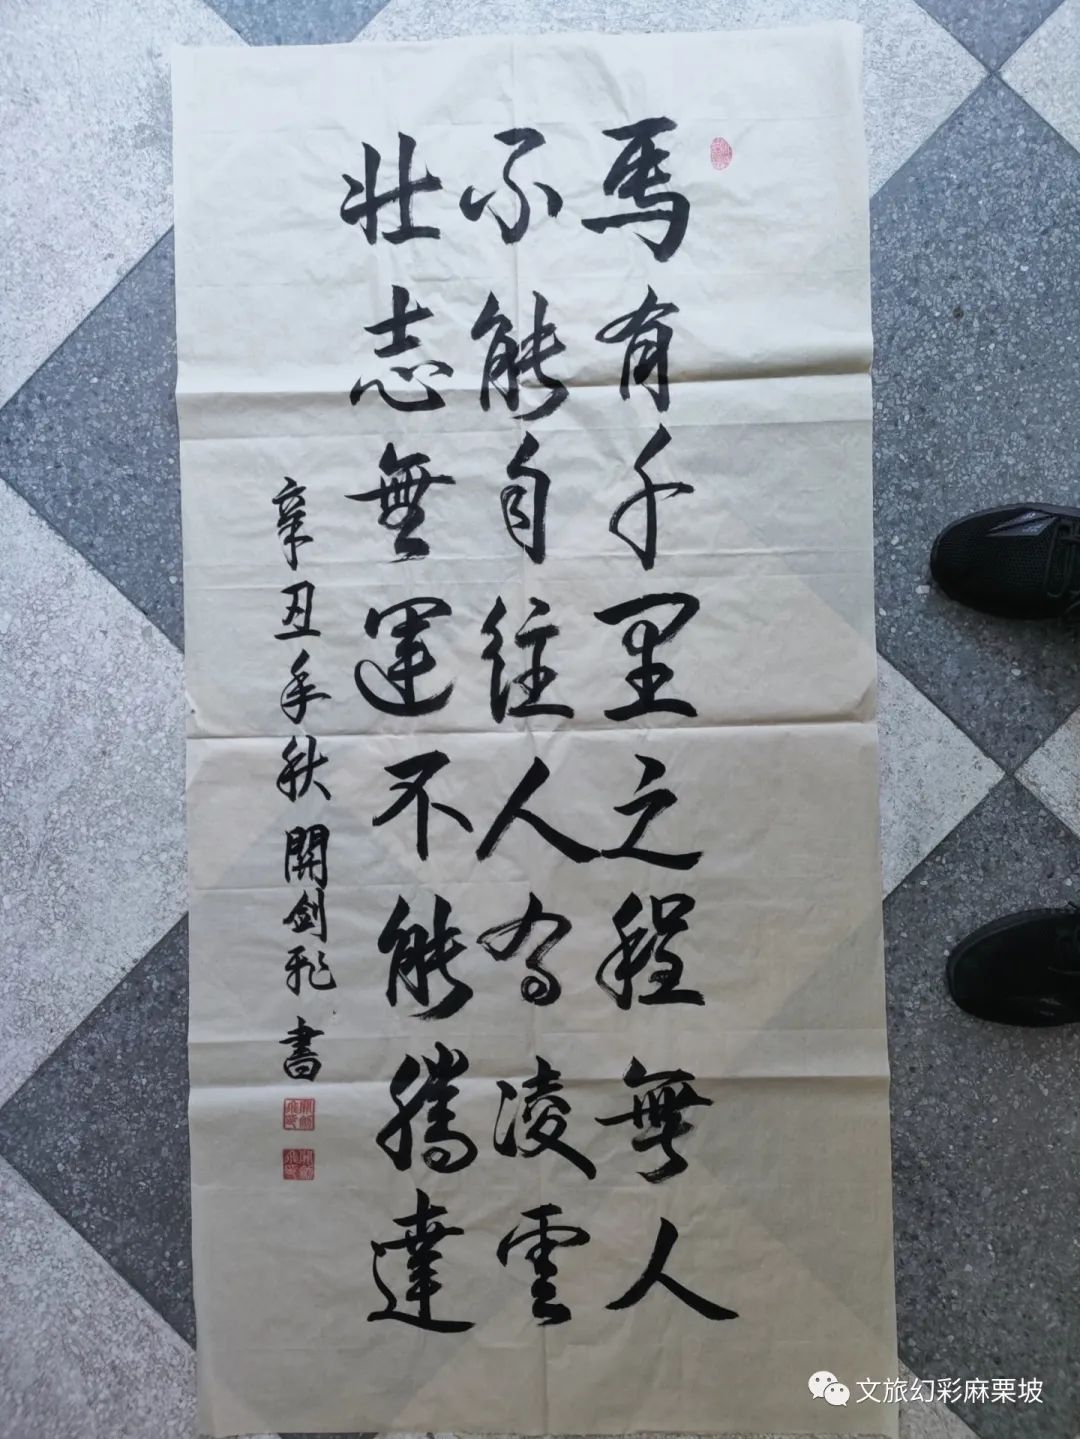 馬有千里之程無人
不能自往人為凌雲
壯志無運不能騰達
辛丑年秋開劍飛書
文旅幻彩麻栗坡